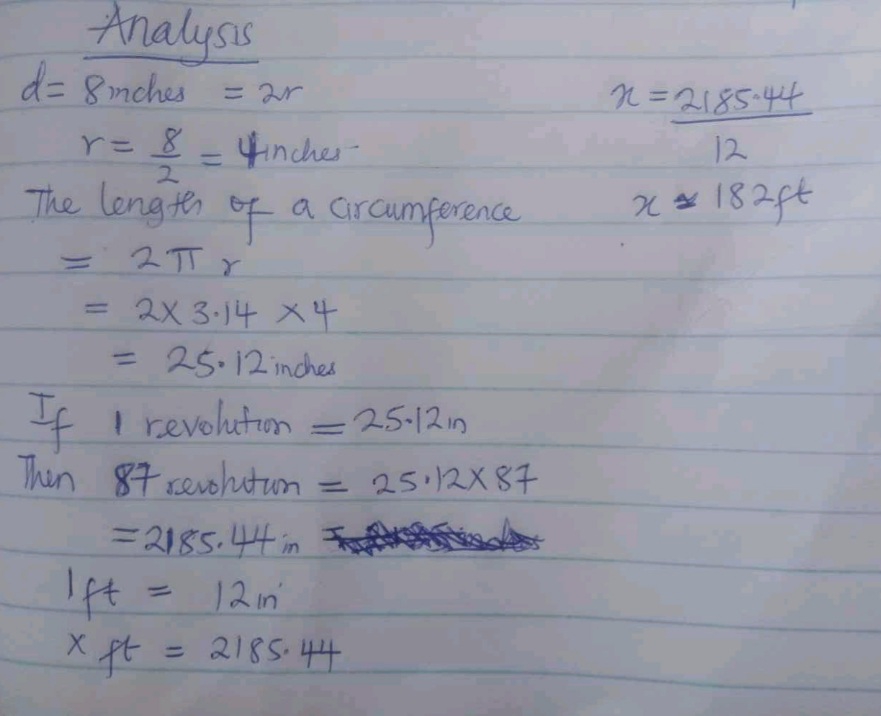 Analysis
d = 8inches = 2r
r = 8/2 = 4inches
The length of a circumference
= 2πr
= 2 × 3.14 × 4
= 25.12inches
If 1 revolution = 25.12in
Then 87 revolution = 25.12×87
= 2185.44in
1ft = 12in
x ft = 2185.44
x = 2185.44/12
x ≈ 182ft